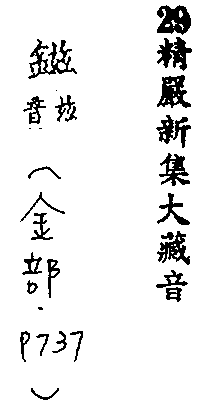 29精嚴新集大藏音
鎡音兹(金部.P737)